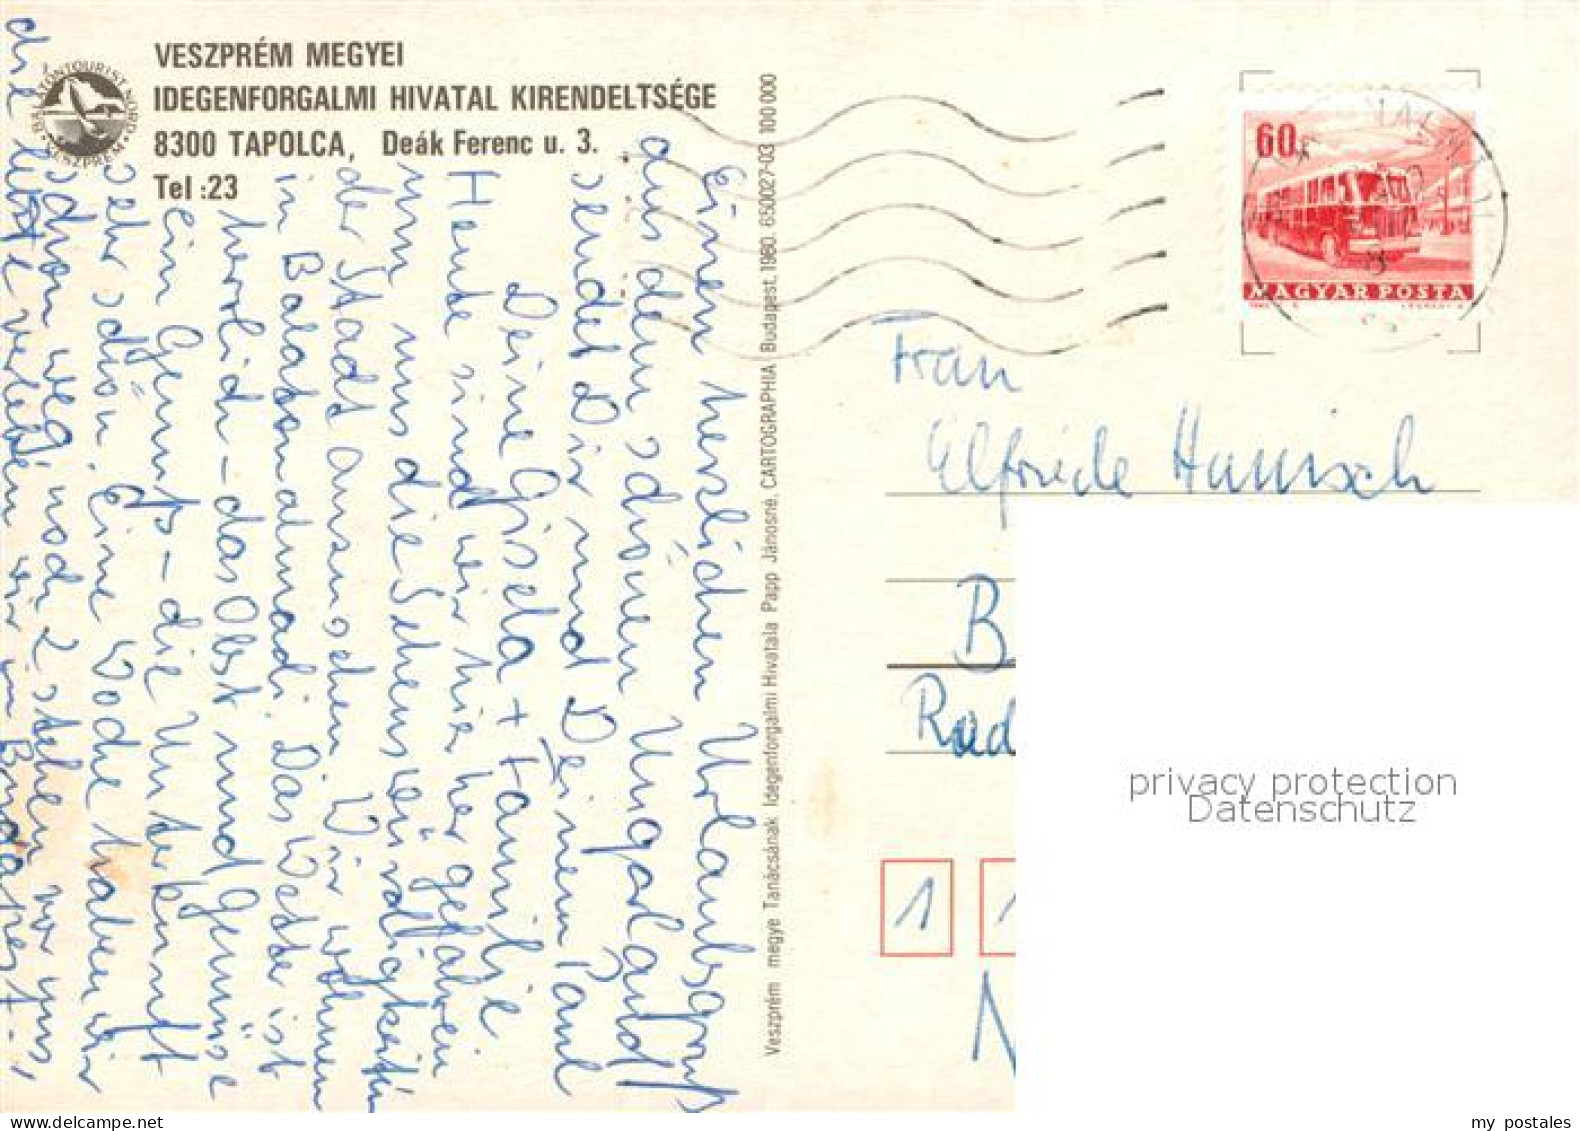 BALATONTOURIST NORD
VESZPRÉM
VESZPRÉM MEGYEI
IDEGENFORGALMI HIVATAL KIRENDELTSÉGE
8300 TAPOLCA, Deák Ferenc u. 3.
Tel :23
Einen herzlichen Urlaubsgruß
aus dem schönen Ungarland
sendet Dir und Deinem Paul
Deine Gisela + Familie
Heute sind wir hier her gefahren
um uns die Sehenswürdigkeiten
der Stadt anzusehen. Wir wohnen
in Balatonalmadi. Das Wetter ist
herrlich – das Obst und Gemüse
ein Genuß – die Unterkunft
sehr schön. Eine Woche haben wir
schon weg, noch 2 stehen vor uns,
die letzte verleben wir in Budapest.
Veszprém megye Tanácsának Idegenforgalmi Hivatala Papp Jánosné. CARTOGRAPHIA Budapest. 1980. 650027-03 100 000
60f
MAGYAR POSTA
Frau
Elfriede Hanisch
B
Rad
1
privacy protection
Datenschutz
my postales